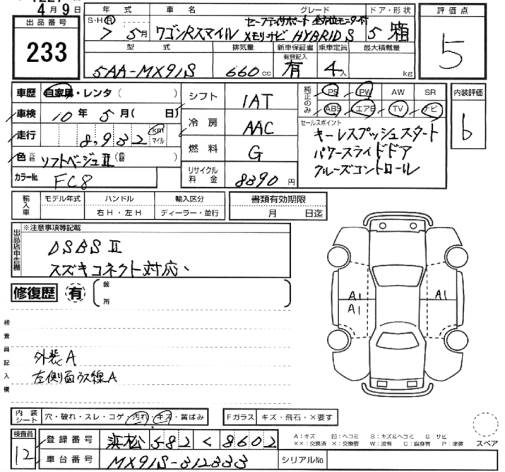 4月9日
年式 車名 グレード ドア・形状 評価点
出品番号
S・H・R 7 5月 ワゴンRスマイル セーフティサポート 全方位モニター付 メモリナビ HYBRID S 5 箱
233
型式 排気量 新車保証書 有償記入 乗車定員 最大積載量
5
5AA-MX91S 660cc 有 4人 kg
車歴 自家用・レンタ( )
シフト 1AT
純正のみ PS PW AW SR
ABS エアB TV ナビ
内装評価
b
車検 10年5月( )
走行 8,932 Km マイル
冷房 AAC
セールスポイント
キーレスプッシュスタート
パワースライドドア
クルーズコントロール
色 ソフトベージュⅡ( )
燃料 G
カラーNo. FC8
リサイクル料金 8390円
輸入車 モデル年式 ハンドル 輸入区分 書類有効期限
右H・左H ディーラー・並行 月 日迄
出品店申告欄
※注意事項等記載
DSBSⅡ
スズキコネクト対応、
修復歴 有 箇所
A1 A1
検査員記入欄
外装A
左側面ウス線A
内装シート 穴・破れ・スレ・コゲ・汚れ・キズ・黄ばみ Fガラス キズ・飛石・×要す
検査員
12
登録番号 浜松 582 く 8602
車台番号 MX91S-312333 シリアルNo.
スペア